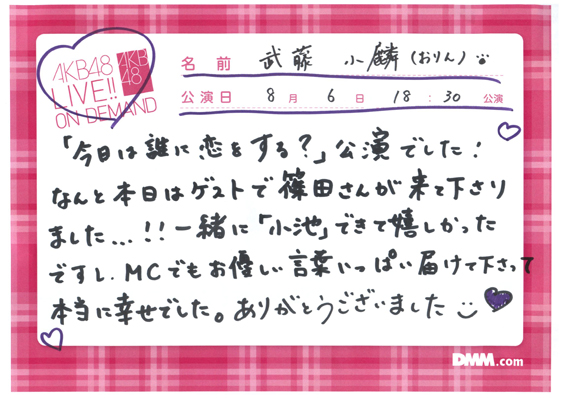 AKB48
LIVE!!
ON DEMAND
AKB
48
名前 武藤 小麟(おりん)
公演日 8月 6日 18:30 公演
「今日は誰に恋をする?」公演でした!
なんと本日はゲストで篠田さんが来て下さり
ました...!!一緒に「小池」できて嬉しかった
ですし、MCでもお優しい言葉いっぱい届けて下さって
本当に幸せでした。ありがとうございました
DMM.com